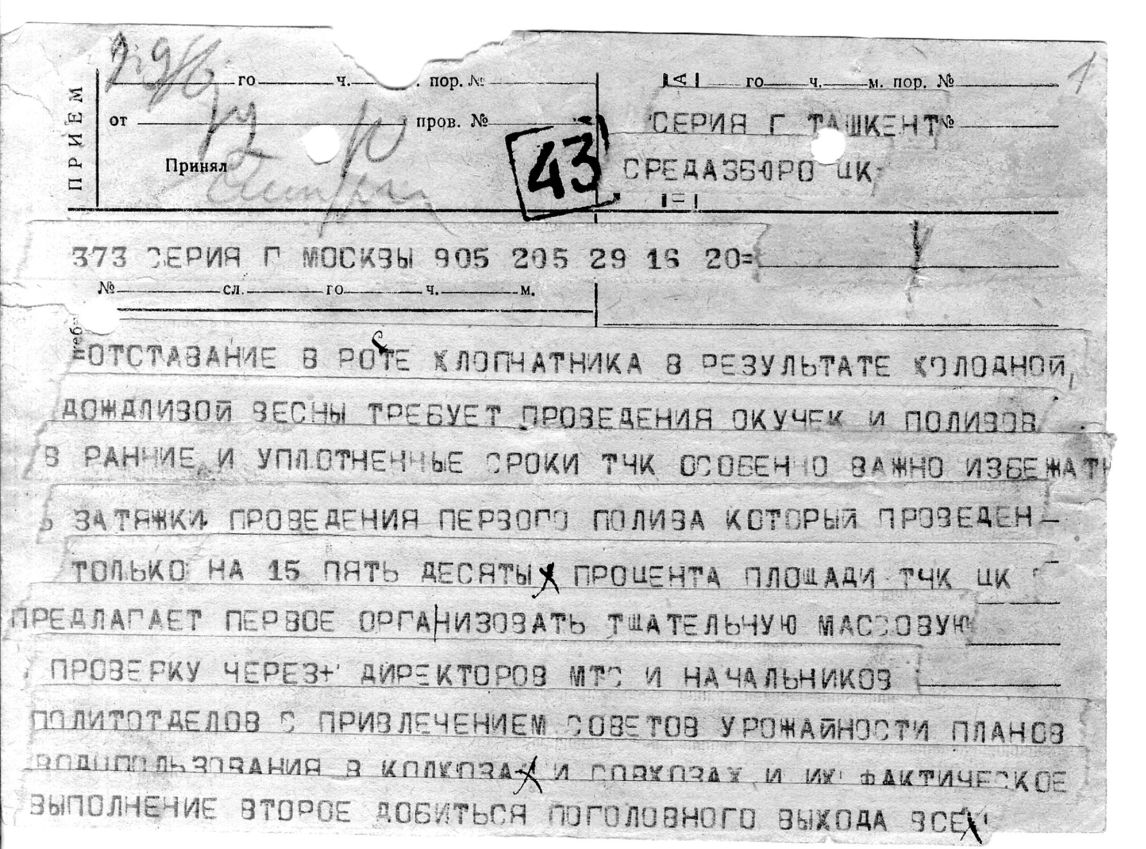 ПРИЕМ
го ч. . пор. №
от пров. №
Принял
43
го ч. м. пор. №
1
СЕРИЯ Г ТАШКЕНТ №
СРЕДАЗБЮРО ЦК
373 СЕРИЯ Г МОСКВЫ 905 205 29 16 20=
№ сл. го ч. м.
=ОТСТАВАНИЕ В РОСТЕ ХЛОПЧАТНИКА В РЕЗУЛЬТАТЕ ХОЛОДНОЙ,
ДОЖДЛИВОЙ ВЕСНЫ ТРЕБУЕТ ПРОВЕДЕНИЯ ОКУЧЕК И ПОЛИВОВ
В РАННИЕ И УПЛОТНЕННЫЕ СРОКИ ТЧК ОСОБЕННО ВАЖНО ИЗБЕЖАТЬ
Ь ЗАТЯЖКИ ПРОВЕДЕНИЯ ПЕРВОГО ПОЛИВА КОТОРЫЙ ПРОВЕДЕН
ТОЛЬКО НА 15 ПЯТЬ ДЕСЯТЫХ ПРОЦЕНТА ПЛОЩАДИ ТЧК ЦК
ПРЕДЛАГАЕТ ПЕРВОЕ ОРГАНИЗОВАТЬ ТЩАТЕЛЬНУЮ МАССОВУЮ
ПРОВЕРКУ ЧЕРЕЗ+' ДИРЕКТОРОВ МТС И НАЧАЛЬНИКОВ
ПОЛИТОТДЕЛОВ С ПРИВЛЕЧЕНИЕМ СОВЕТОВ УРОЖАЙНОСТИ ПЛАНОВ
ВОДОПОЛЬЗОВАНИЯ В КОЛХОЗАХ И СОВХОЗАХ И ИХ ФАКТИЧЕСКОЕ
ВЫПОЛНЕНИЕ ВТОРОЕ ДОБИТЬСЯ ПОГОЛОВНОГО ВЫХОДА ВСЕХ